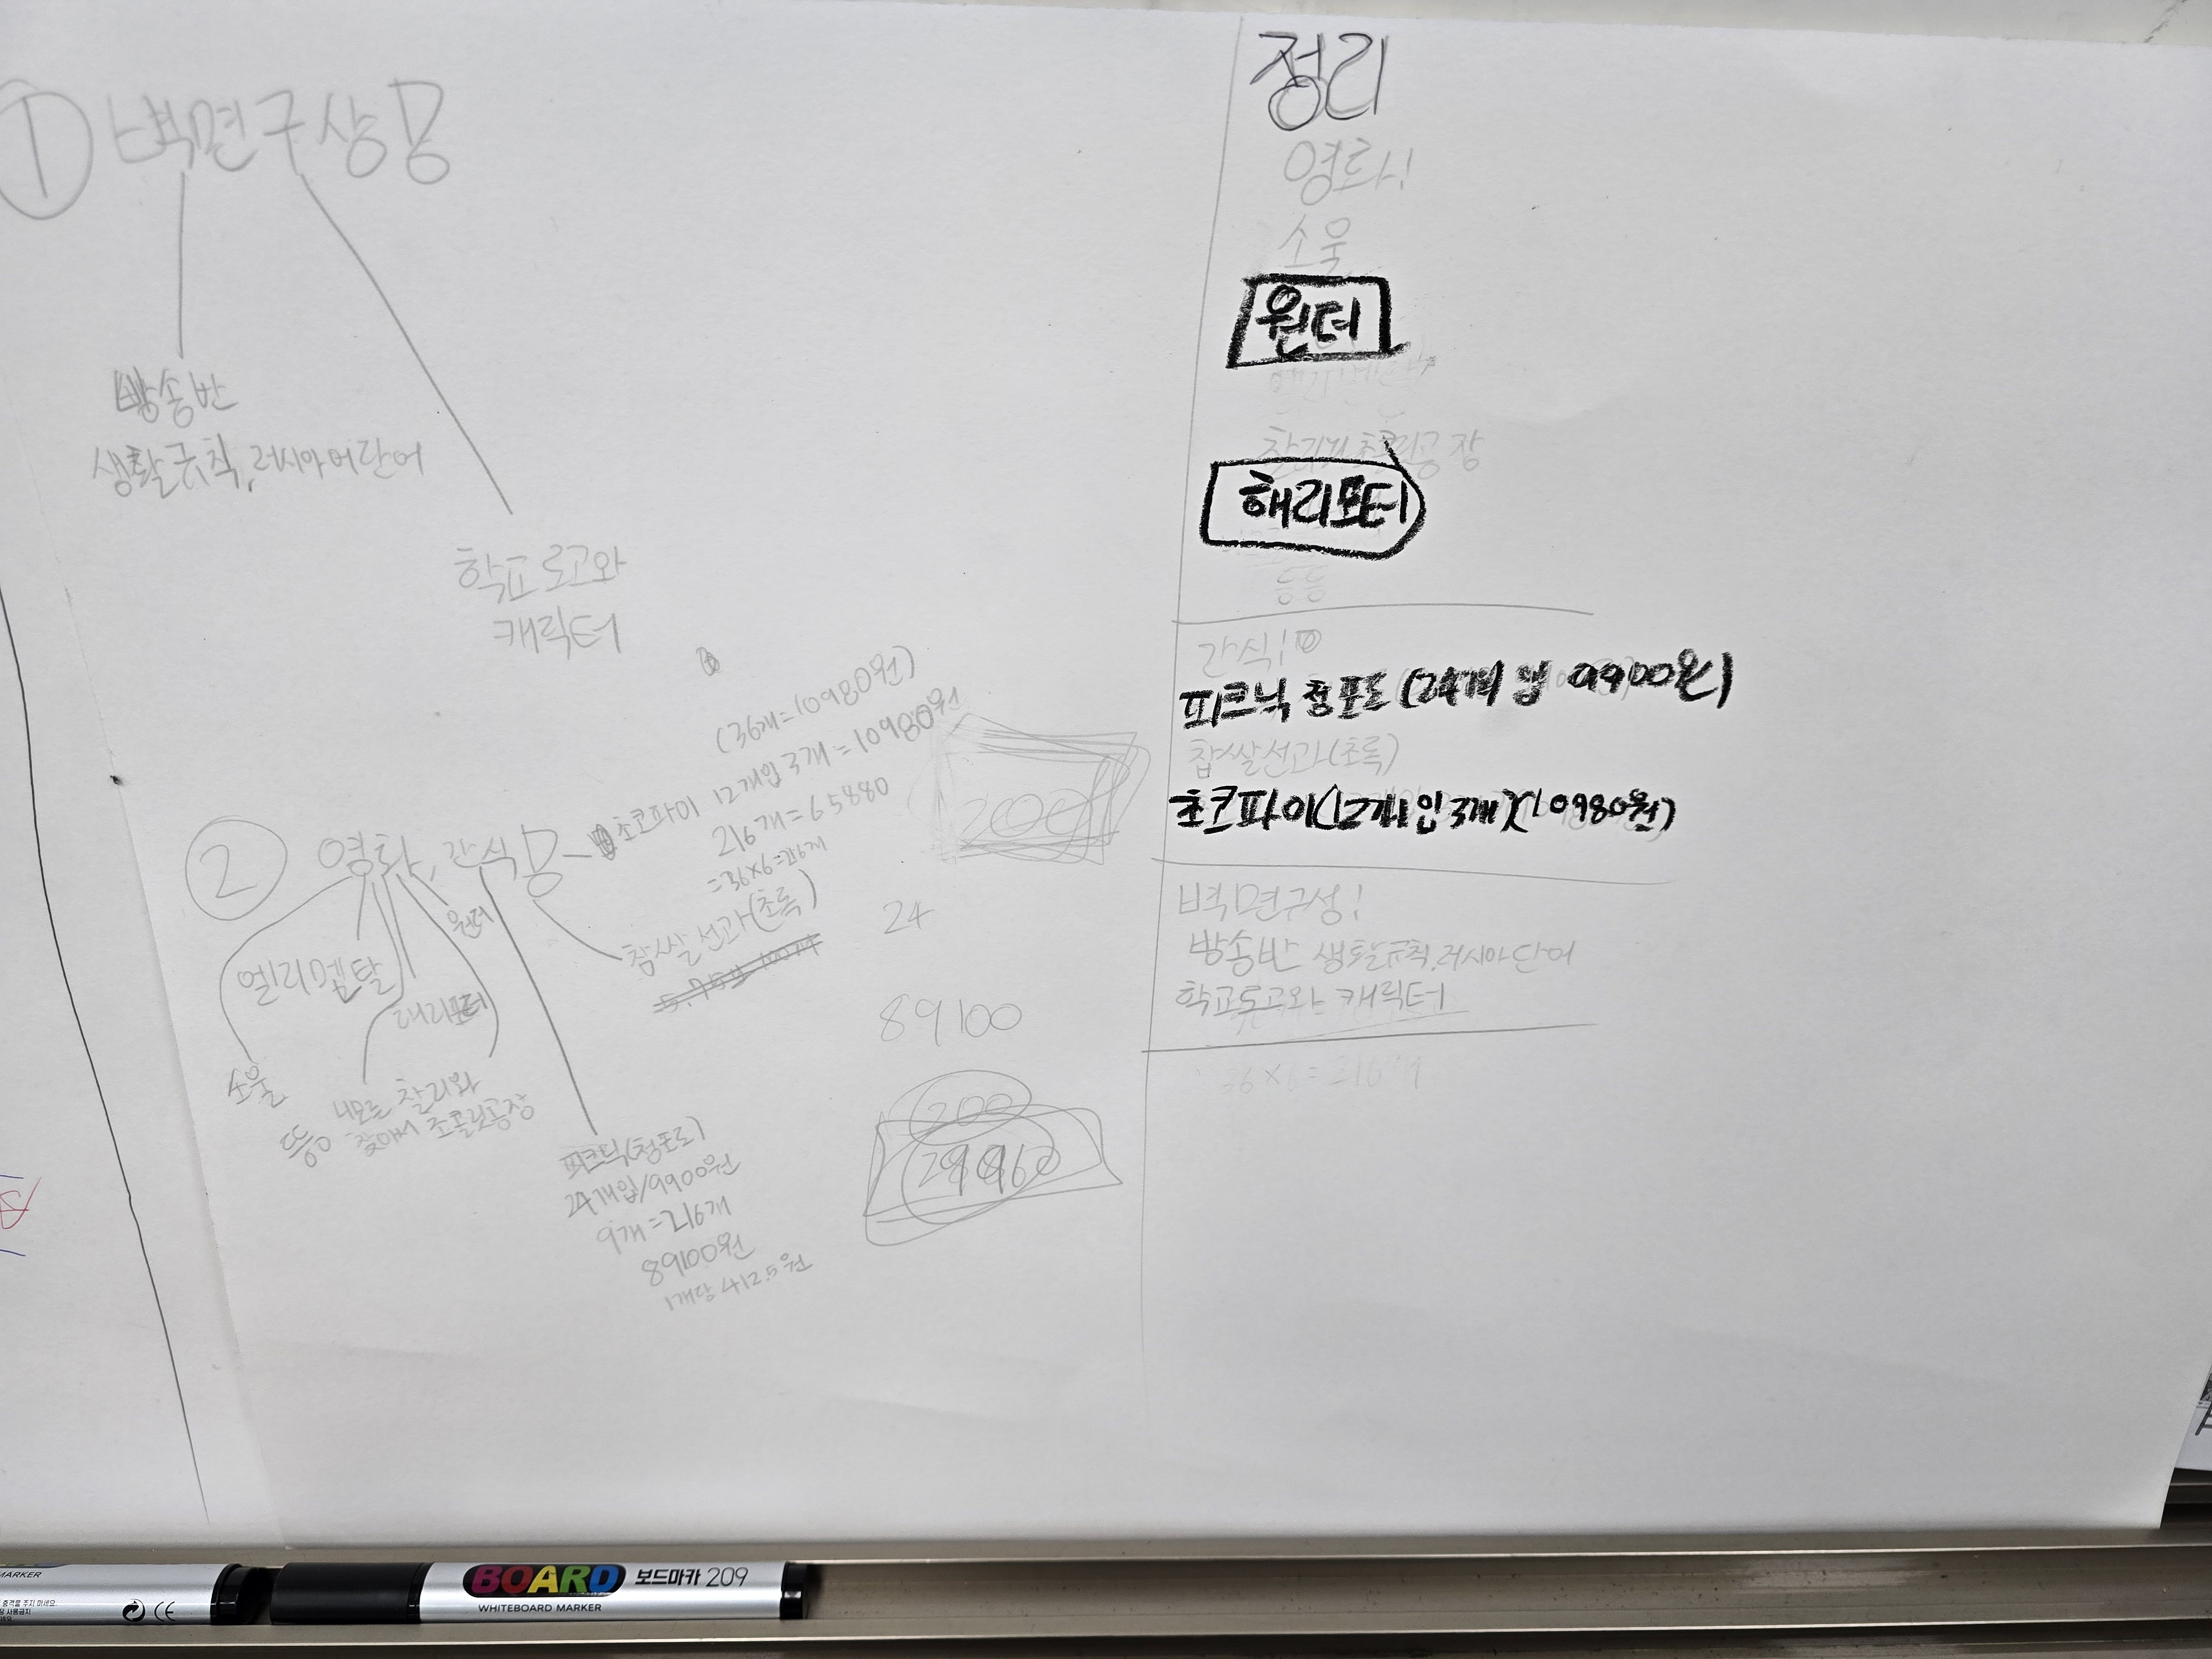 ① 벽면구상
방송반
생활규칙, 러시아어단어
학교로고와
캐릭터
② 영화, 간식
원더
엘리멘탈
해리포터
소울
니모를 찾아서
찰리와
초콜릿공장
등등
(36개=10980원)
초코파이 12개입 3개=10980원
216개=65880
=36×6=216개
찹쌀선과(초록)
피크닉(청포도)
24개입/9900원
9개=216개
89100원
1개당 412.5원
200
24
89100
200
정리
영화!
소울
원더
해리포터
등등
간식!
피크닉 청포도 (24개입 9900원)
찹쌀선과(초록)
초코파이(12개입 3개)(10980원)
벽면구성!
방송반 생활규칙, 러시아단어
학교로고와 캐릭터
36×6=216개
MARKER
BOARD 보드마카 209
WHITEBOARD MARKER